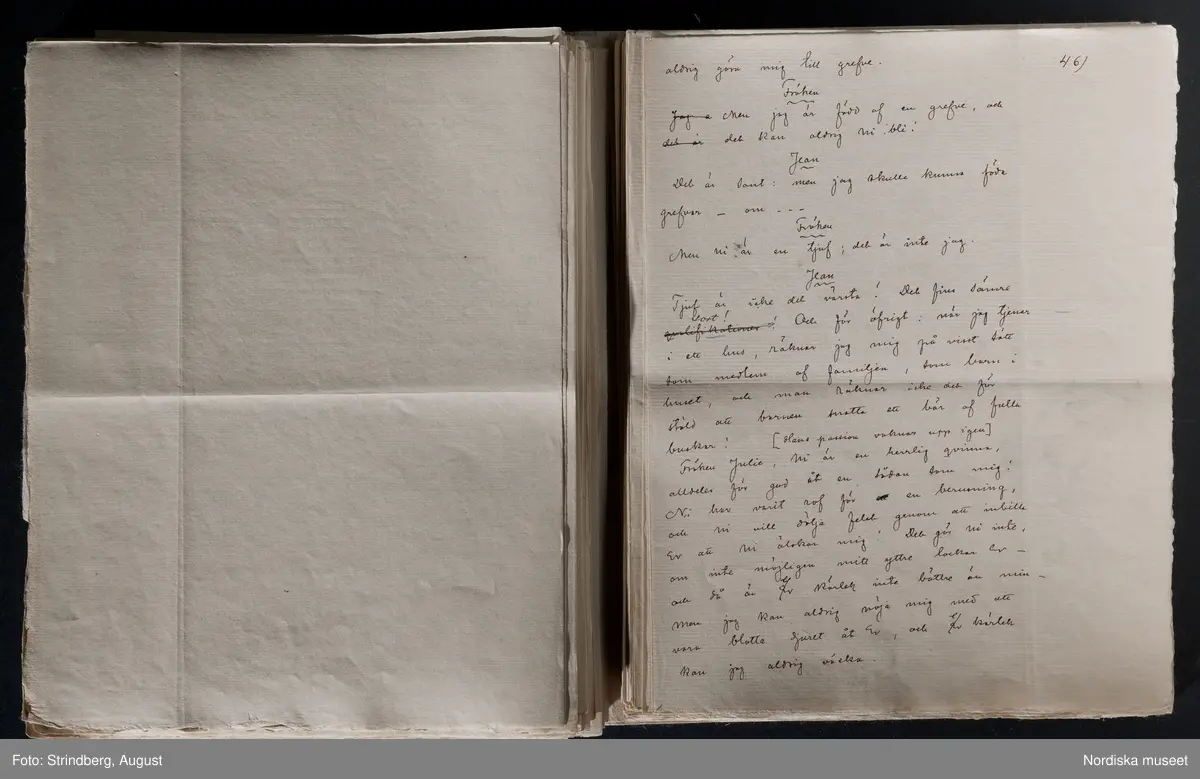 46)
aldrig göra mig till grefve.
Fröken
Jag a Men jag är född af en grefve, och
det är det kan aldrig ni bli!
Jean
Det är sant: men jag skulle kunna föda
grefvar – om - - -
Fröken
Men ni är en tjuf; det är inte jag.
Jean
Tjuf är icke det värsta! Det fins sämre
sort!
qvalifikationer! Och för öfrigt: när jag tjenar
i ett hus, räknar jag mig på visst sätt
som medlem af familjen, som barn i
huset, och man räknar icke det för
stöld att barnen snatta ett bär af fulla
buskar! [Hans passion vaknar upp igen]
Fröken Julie, Ni är en herrlig qvinna,
alldeles för god åt en sådan som mig!
Ni har varit rof för en berusning,
och ni vill dölja felet genom att inbilla
Er att Ni älskar mig! Det gör ni inte,
om inte möjligen mitt yttre lockar Er –
och då är Er kärlek inte bättre än min –
men jag kan aldrig nöja mig med att
vara blotta djuret åt Er, och Er kärlek
kan jag aldrig väcka.
Foto: Strindberg, August
Nordiska museet